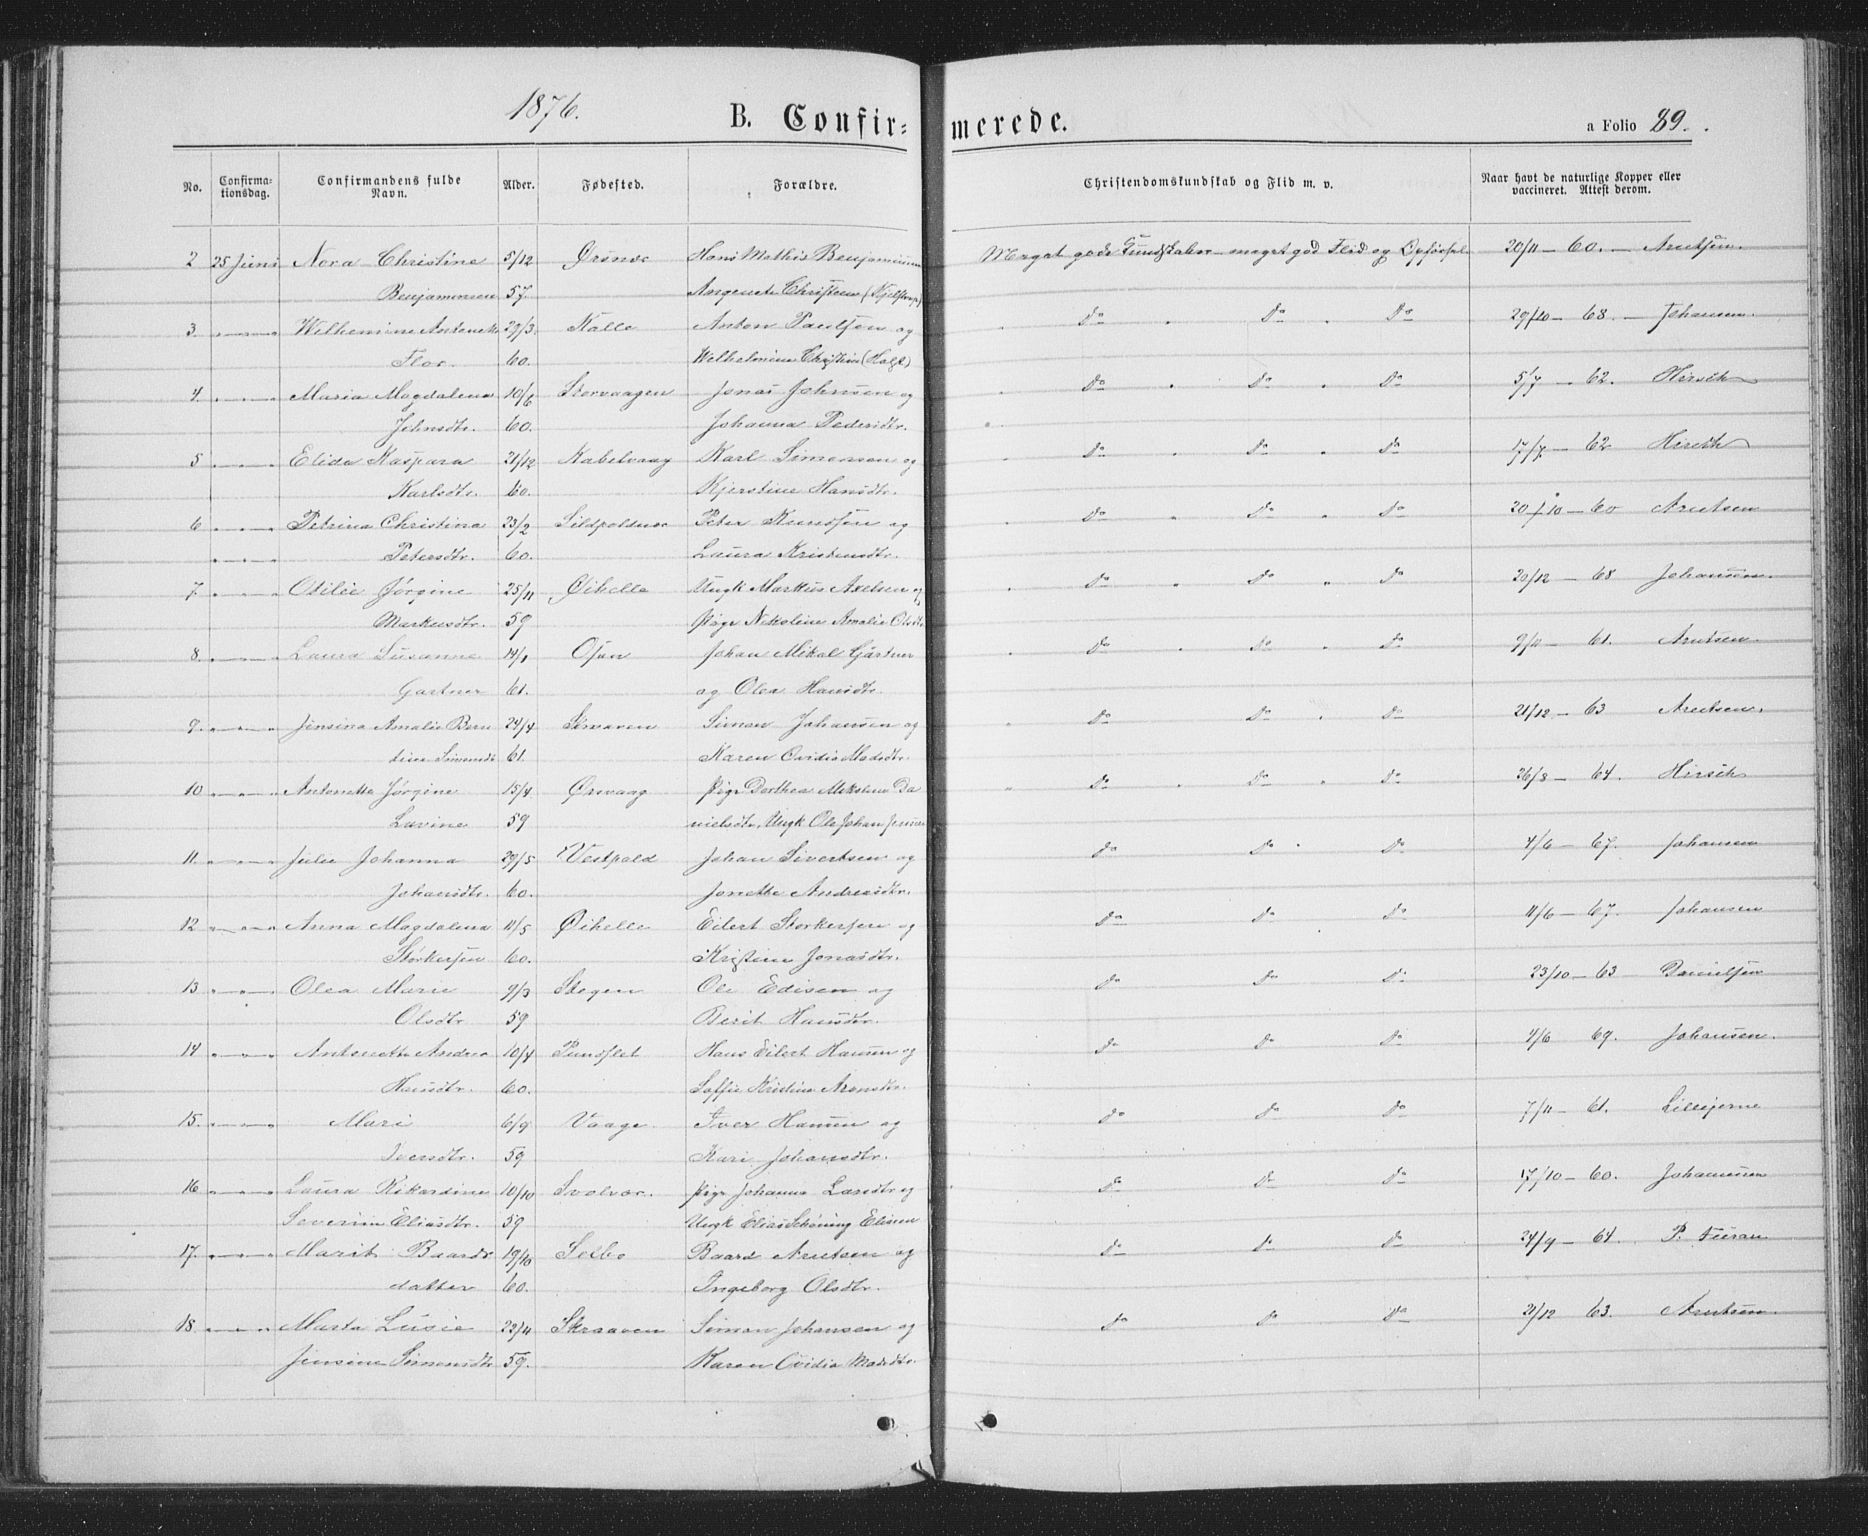 1876.
B. Confir= merede.
a Folio 89.
No.
Confirma-
tionsdag.
Confirmandens fulde
Navn.
Alder.
Fødested.
Forældre.
Christendomskundskab og Flid m. v.
Naar havt de naturlige Kopper eller
vaccineret. Attest derom.
2 25 Juni Nora Christine 5/12 Ørsnes Hans Mathis Benjaminsen Meget gode Kundskaber meget god Flid og Opførsel 20/11 - 60. - Arntsen.
Benjaminsen 57. Angenete Christensen
3 Wilhemine Antonette 29/3 Kalle Anton Paulsen og Do Do Do 29/10 - 68. - Johansen.
Flor. 60. Wilhelmine Christine
4. Maria Magdalena 10/6 Storvaagen Jonas Johnsen og Do Do Do 5/7 - 62. Hirsch
Johnsdtr. 60. Johanna Pedersdtr.
5 Elida Kaspara 21/12 Kabelvaag Karl Simonsen og Do Do Do 17/7 - 62 Hirsch
Karlsdtr. 60. Kjerstine Hansdtr.
6 Petrina Christina 23/2 Sildpoldnes Peter Knudsen og Do Do Do 20/10 - 60 Arntsen
Petersdtr. 60. Laura Kristensdtr.
7 Otilie Jørgine 25/11 Øihelle Ungk Markus Axelsen og Do Do Do 20/12 - 68 Johansen.
Markusdtr. 59 Pige Nikoline Amalie Olsdtr
8. Laura Susanne 14/1 Osan Johan Mikal Gärtner Do Do Do 9/11 - 61. Arntsen.
Gartner 61. og Olea Hansdtr.
9. Jensina Amalie Bern 24/4 Skraaven Simon Johansen og Do Do Do 21/12 - 63 Arntsen.
tine Simonsdt 61. Karen Ovidia Madsdtr.
10 Antonette Jørgine 15/4 Ørsvaag Pige Dorthea Nikoline Da Do Do Do 26/8 - 64. Hirsch
Lavine 59 nielsdtr, Ungk Ole Johan Jensen
11. Julie Johanna 29/5 Vestpold Johan Sivertsen og Do Do Do 4/6 - 67. Johansen
Johansdtr. 60. Jonette Andreasdtr.
12 Anna Magdalena 11/5 Øihelle Eilert Storkersen og Do Do Do 11/6 - 67. Johansen
Størkersen 60. Kristine Jonasdtr.
13 Olea Marie 9/3 Stegen Ole Edisen og Do Do Do 23/10 - 63 Danielsen
Olsdtr 59 Berit Hansdtr.
14 Antonette Andrea 10/4 Pundslet Hans Eilert Hansen og Do Do Do 4/6 69. Johansen.
Hansdtr. 60. Soffie Kristine Aronsdtr.
15. Mari 6/9 Vaage Iver Hansen og Do Do Do 7/11 - 61. Lillejerne
Iversdtr. 59 Kari Johansdtr.
16 Laura Rikardine 10/10 Svolvær. Pige Johanna Larsdtr og Do Do Do 17/10 - 60. Johannsen
Severine Eliasdtr. 59 Ungk Elias Schøning Elisen
17. Marit Baards 19/10 Selbo Baard Arntsen og Do Do Do 24/9 - 64. P. Furan
datter 60. Ingeborg Olsdtr.
18. Marta Lusie 22/11 Skraaven Simon Johansen og Do Do Do 21/12 63. Arntsen.
Jensine Simonsdtr 59. Karen Ovidia Madsdtr.